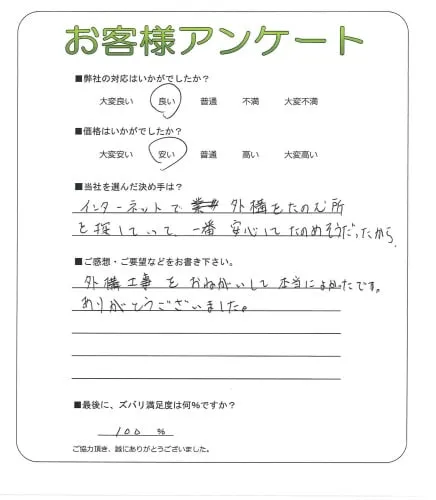 お客様アンケート
■弊社の対応はいかがでしたか?
大変良い 良い 普通 不満 大変不満
■価格はいかがでしたか?
大変安い 安い 普通 高い 大変高い
■当社を選んだ決め手は?
インターネットで 外構をたのむ所
を探していて、一番 安心してたのめそうだったから。
■ご感想・ご要望などをお書き下さい。
外構工事をおねがいして本当によかったです。
ありがとうございました。
■最後に、ズバリ満足度は何%ですか?
100 %
ご協力頂き、誠にありがとうございました。